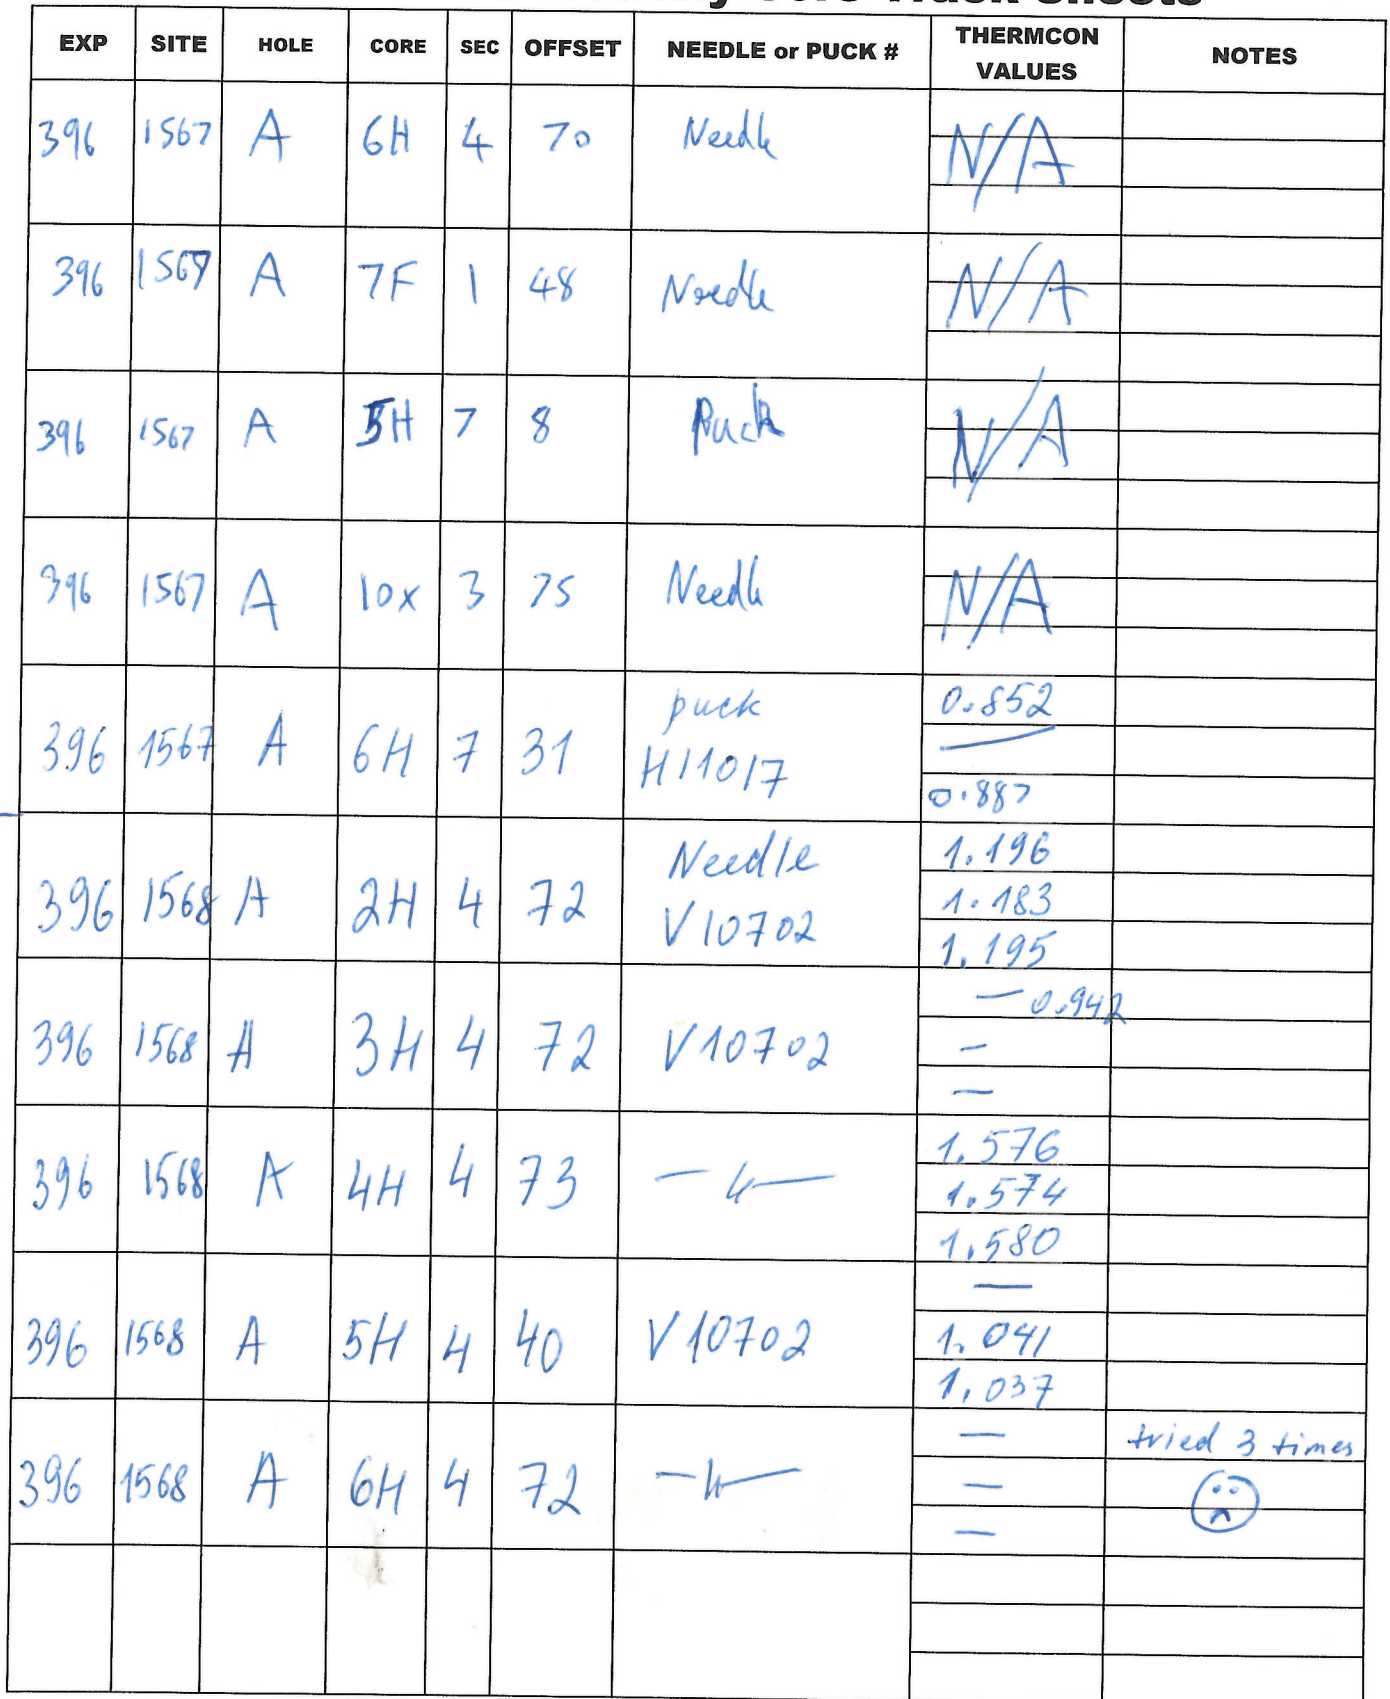 EXP SITE HOLE CORE SEC OFFSET NEEDLE or PUCK # THERMCON VALUES NOTES
396 1567 A 6H 4 70 Needle N/A
396 1567 A 7F 1 48 Needle N/A
396 1567 A 5H 7 8 Puck N/A
396 1567 A 10x 3 75 Needle N/A
396 1567 A 6H 7 31 puck H11017 0.852
—
0.887
396 1568 A 2H 4 72 Needle V10702 1.196
1.183
1.195
396 1568 A 3H 4 72 V10702 — 0.942
—
—
396 1568 A 4H 4 73 —〃— 1.576
1.574
1.580
396 1568 A 5H 4 40 V10702 —
1.041
1.037
396 1568 A 6H 4 72 —〃— — tried 3 times
—
—